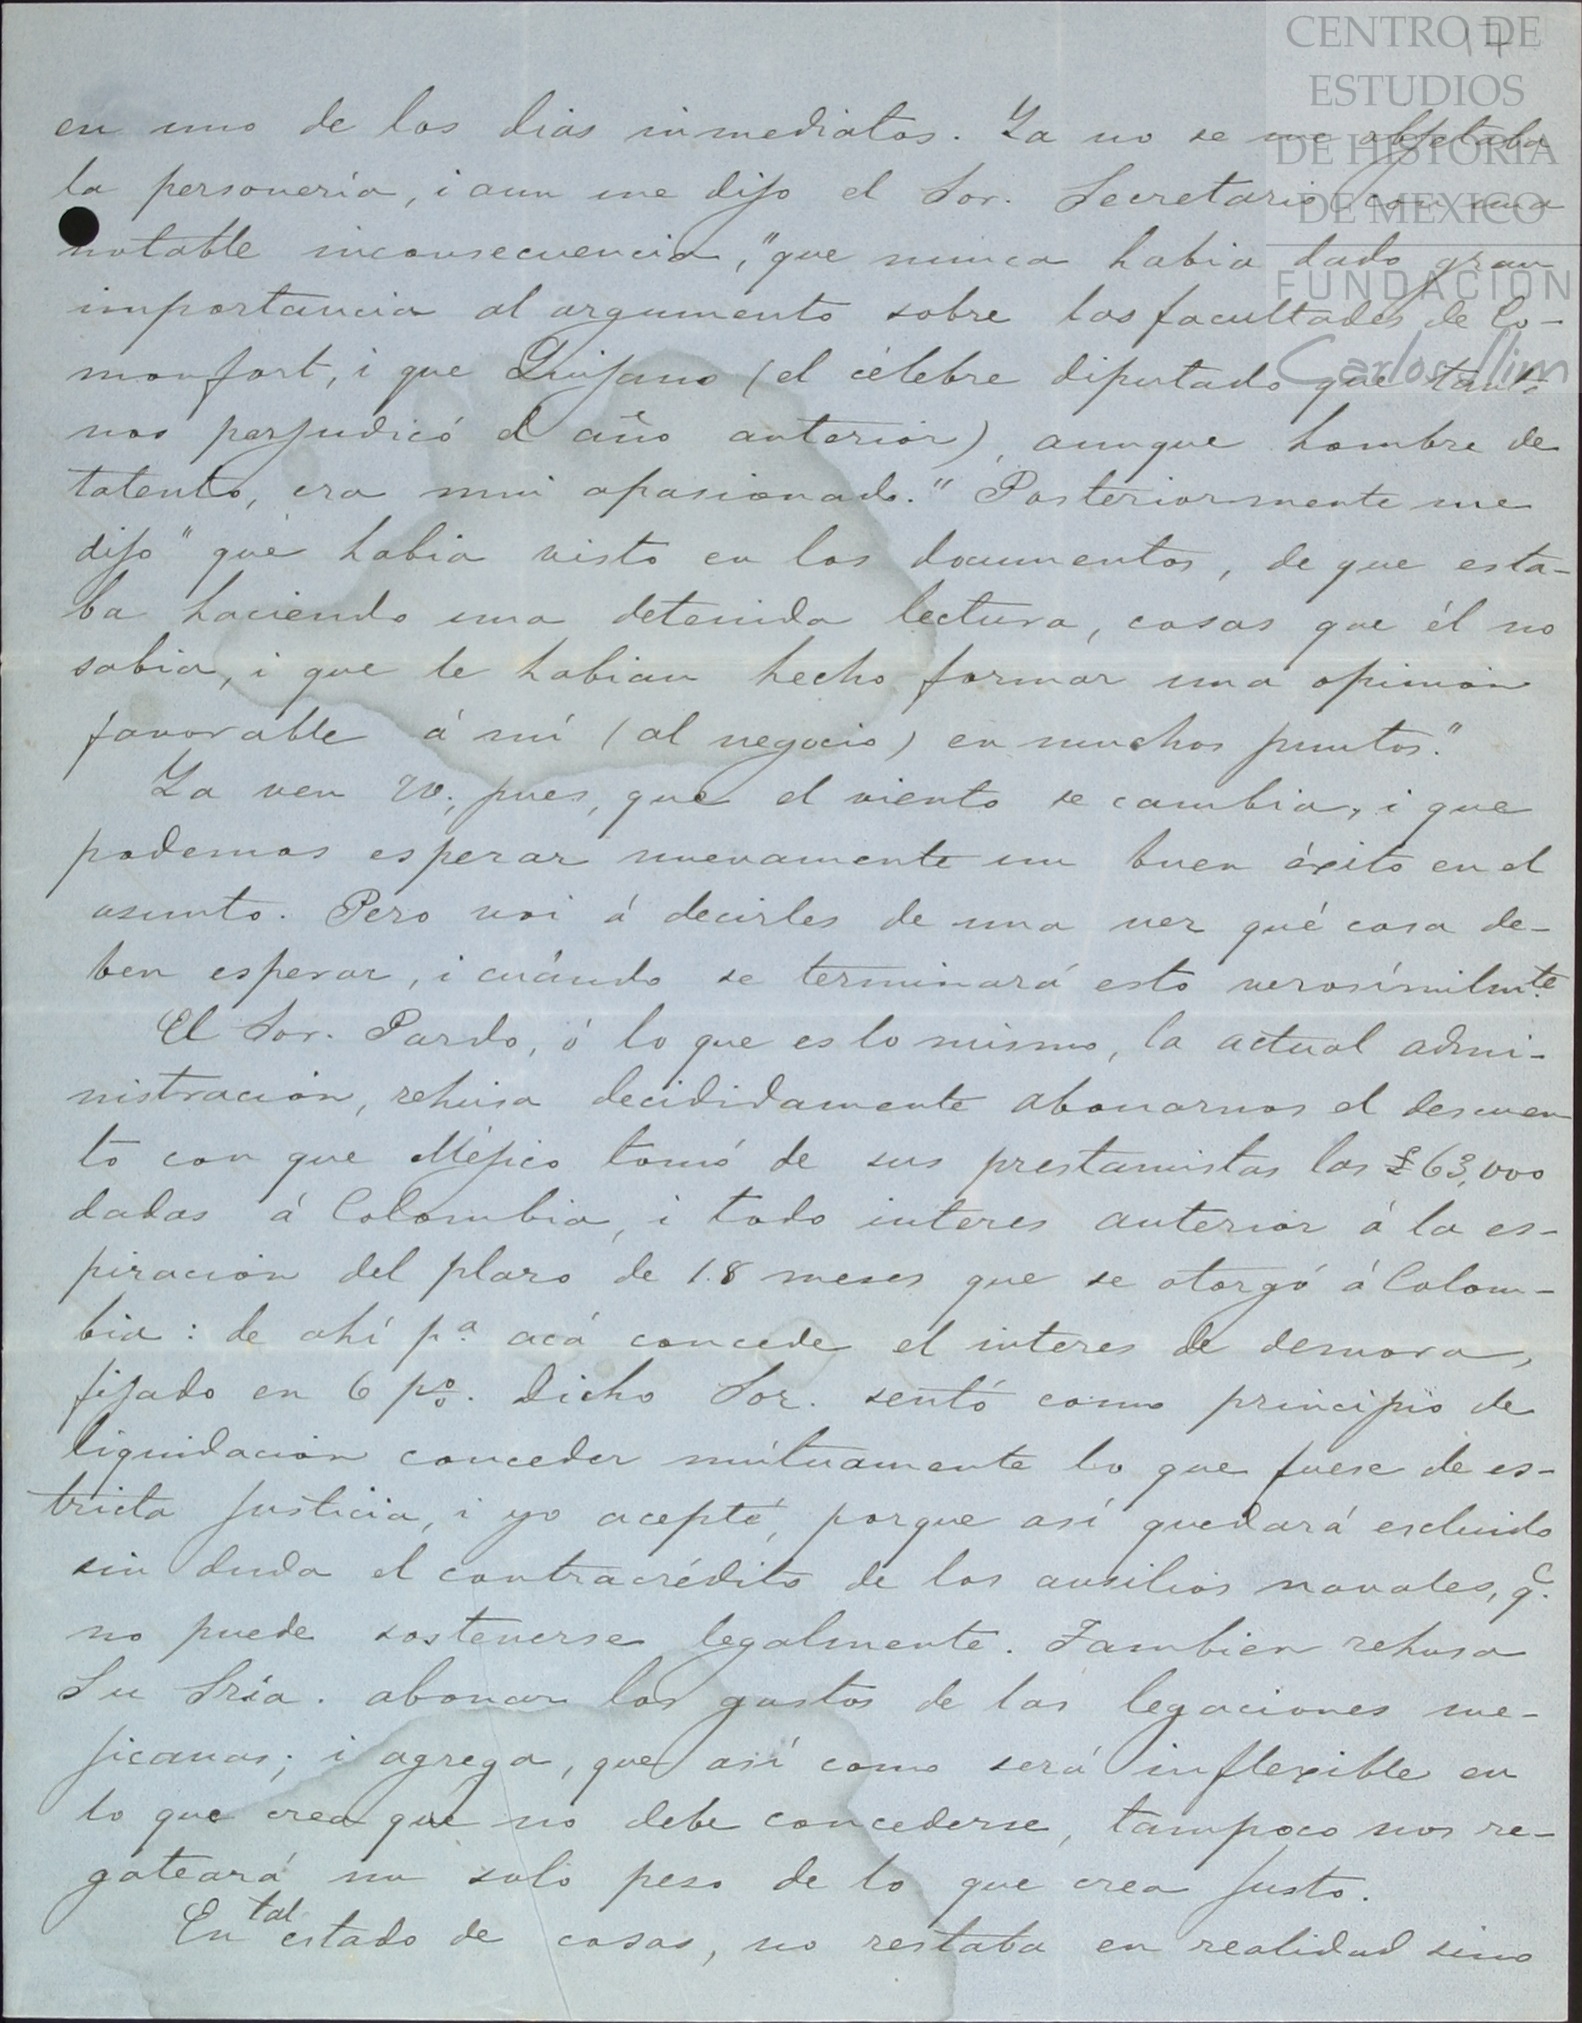 CENTRO DE
ESTUDIOS
DE HISTORIA
DE MEXICO
FUNDACION
Carlos Slim
17
en uno de los dias inmediatos. Ya no se me objetaba
la personería, i aun me dijo el Sor. Secretario (con una
notable inconsecuencia, "que nunca habia dado gran
importancia al argumento sobre las facultades de Co-
monfort, i que Quijano (el célebre diputado que tanto
nos perjudicó el año anterior), aunque hombre de
talento, era mui apasionado." Posteriormente me
dijo "que habia visto en los documentos, de que esta-
ba haciendo una detenida lectura, cosas que él no
sabia, i que le habian hecho formar una opinion
favorable á mí (al negocio) en muchos puntos."
Ya ven VV., pues, que el viento se cambia, i que
podemos esperar nuevamente un buen éxito en el
asunto. Pero voi á decirles de una vez qué cosa de-
ben esperar, i cuándo se terminará esto verosímilmte.
El Sor. Pardo, ó lo que es lo mismo, la actual admi-
nistracion, rehusa decididamente abonarnos el descuen
to con que Méjico tomó de sus prestamistas las £63,000
dadas á Colombia, i todo interes anterior á la es-
piracion del plazo de 18 meses que se otorgó á Colom-
bia: de ahí pa. acá concede el interes de demora,
fijado en 6 p%. Dicho Sor. sentó como principio de
liquidacion conceder mútuamente lo que fuese de es-
tricta justicia, i yo acepté, porque así quedará escluido
sin duda el contracrédito de los ausilios navales, qe.
no puede sostenerse legalmente. Tambien rehusa
Su Sría. abonar los gastos de las legaciones me-
jicanas; i agrega, que así como será inflexible en
lo que crea que no debe concederse, tampoco nos re-
gateará un solo peso de lo que crea justo.
En tal estado de cosas, no restaba en realidad sino